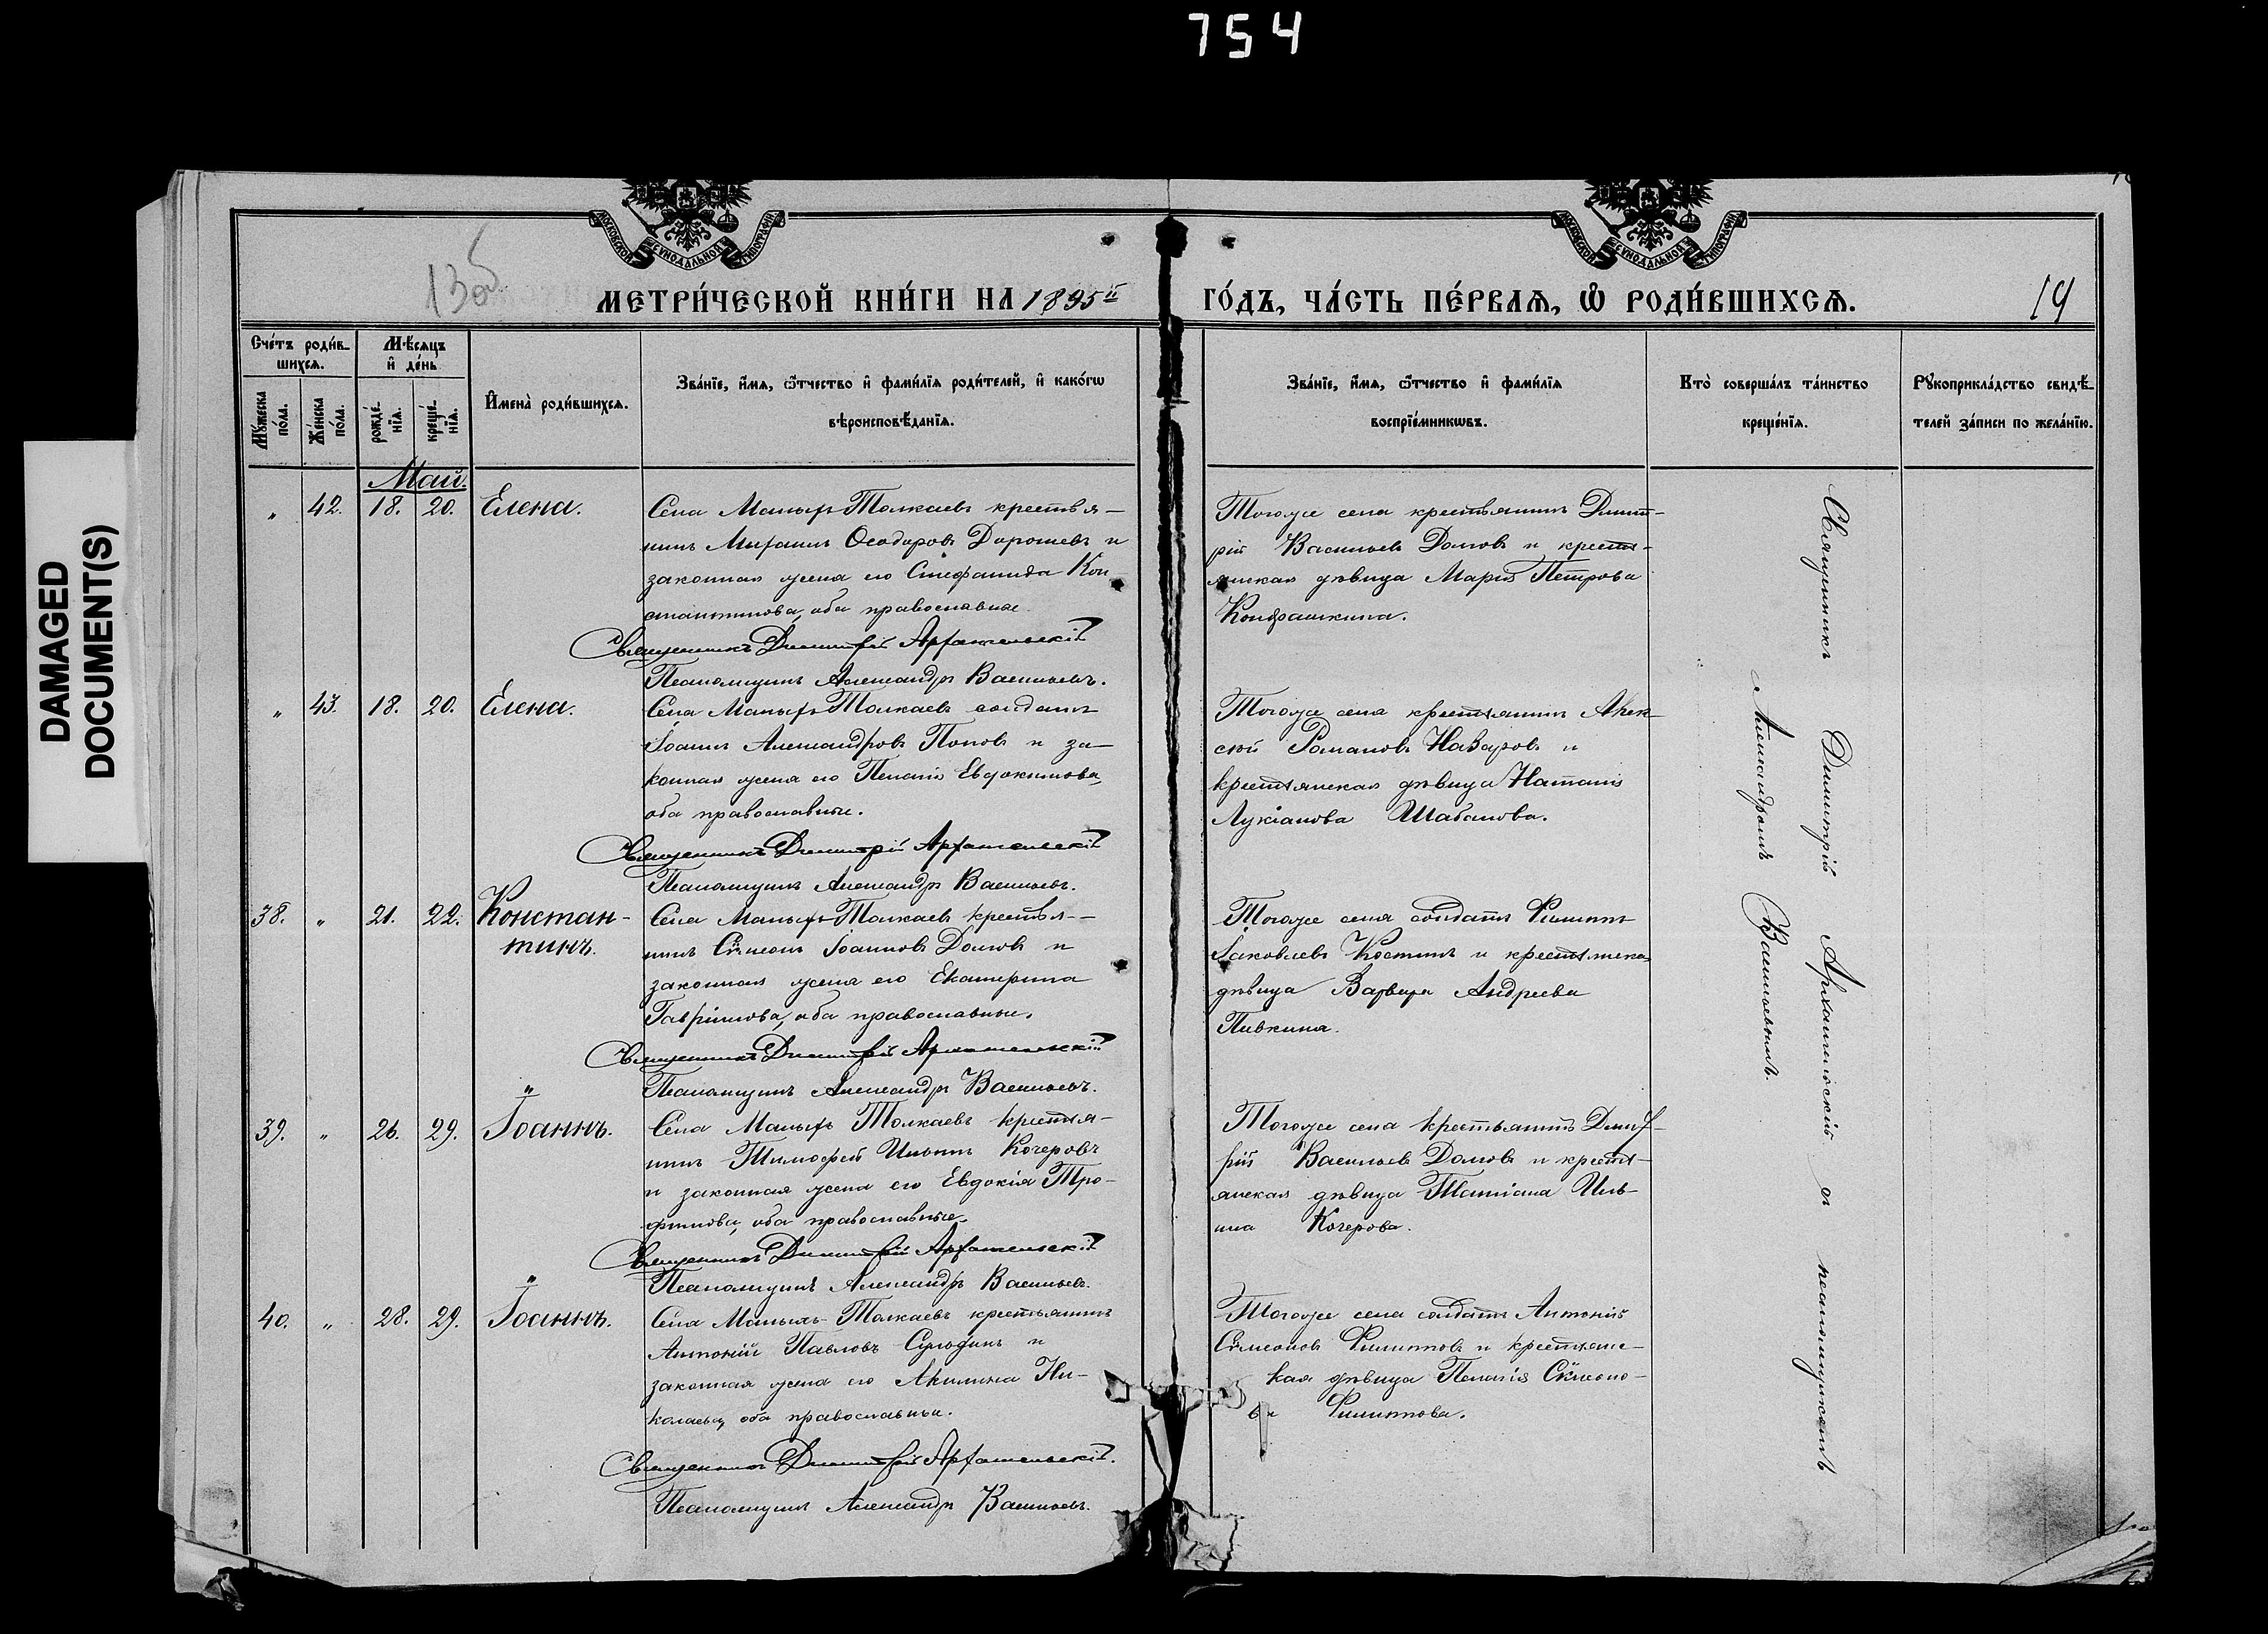 754
DAMAGED
DOCUMENT(S)
МОСКОВСКОЙ СУНОДАЛЬНОЙ ТИПОГРАФІИ
МОСКОВСКОЙ СУНОДАЛЬНОЙ ТИПОГРАФІИ
13об
МЕТРИ́ЧЕСКОЙ КНИ́ГИ НА 1895й ГО́ДЪ, ЧА́СТЬ ПЕ́РВАѦ, Ѽ РОДИ́ВШИХСѦ.
14
Сче́тъ роди́в-
шихся.
Мꙋ́жеска по́ла.
Же́нска по́ла.
Мѣ́сяцъ
и де́нь
рожде́-
нїя.
креще́-
нїя.
Имена̀ роди́вшихся.
Зва́нїе, имя, ѻтчество и фами́лїя роди́телей, и како́гѡ
вѣроисповѣ́данїя.
Зва́нїе, имя, ѻтчество и фами́лїя
воспрїе́мникѡвъ.
Кто̀ соверша́лъ та́инство
креще́нїя.
Рꙋкоприкла́дство свидѣ́-
телей за́писи по жела́нїю.
Май.
„ 42. 18. 20. Елена.
Села Малыхъ Толкаевъ крестья-
нинъ Михаилъ Ѳеодоровъ Дорошевъ и
законная жена его Стефанида Кон-
стантинова, оба православные.
Священникъ Димитрій Архангельскій
Псаломщикъ Александръ Васильевъ.
Тогоже села крестьянинъ Димит-
рій Васильевъ Домовъ и крестья-
янская дѣвица Марія Петрова
Кондрашкина.
„ 43. 18. 20. Елена.
Села Малыхъ Толкаевъ солдатъ
Іоаннъ Александровъ Поповъ и за-
конная жена его Пелагія Евдокимова,
оба православные.
Священникъ Димитрій Архангельскій
Псаломщикъ Александръ Васильевъ.
Тогоже села крестьянинъ Алек-
сѣй Романовъ Назаровъ и
крестьянская дѣвица Наталія
Лукіанова Шабанова.
38. „ 21. 22. Констан-
тинъ.
Села Малыхъ Толкаевъ крестья-
нинъ Сѵмеонъ Іоанновъ Домовъ и
законная жена его Екатерина
Гавріилова, оба православные.
Священникъ Димитрій Архангельскій
Псаломщикъ Александръ Васильевъ.
Тогоже села солдатъ Филиппъ
Іаковлевъ Костинъ и крестьянска
дѣвица Варвара Андреева
Пивкина.
39. „ 26. 29. Іоаннъ.
Села Малыхъ Толкаевъ крестья-
нинъ Тимофей Ильинъ Кочеровъ
и законная жена его Евдокія Тро-
фимова, оба православные.
Священникъ Димитрій Архангельскій
Псаломщикъ Александръ Васильевъ.
Тогоже села крестьянинъ Димит-
рій Васильевъ Домовъ и крестья-
янская дѣвица Татіана Иль-
ина Кочерова.
40. „ 28. 29. Іоаннъ.
Села Малыхъ Толкаевъ крестьянинъ
Антоній Павловъ Сульдинъ и
законная жена его Акилина Ни-
колаева, оба православные.
Священникъ Димитрій Архангельскій.
Псаломщикъ Александръ Васильевъ.
Тогоже села солдатъ Антоній
Сѵмеоновъ Филипповъ и крестьянс-
кая дѣвица Пелагія Сѵмеоно-
ва Филиппова.
Священникъ Димитрій Архангельскій съ псаломщикомъ
Александромъ Васильевымъ.